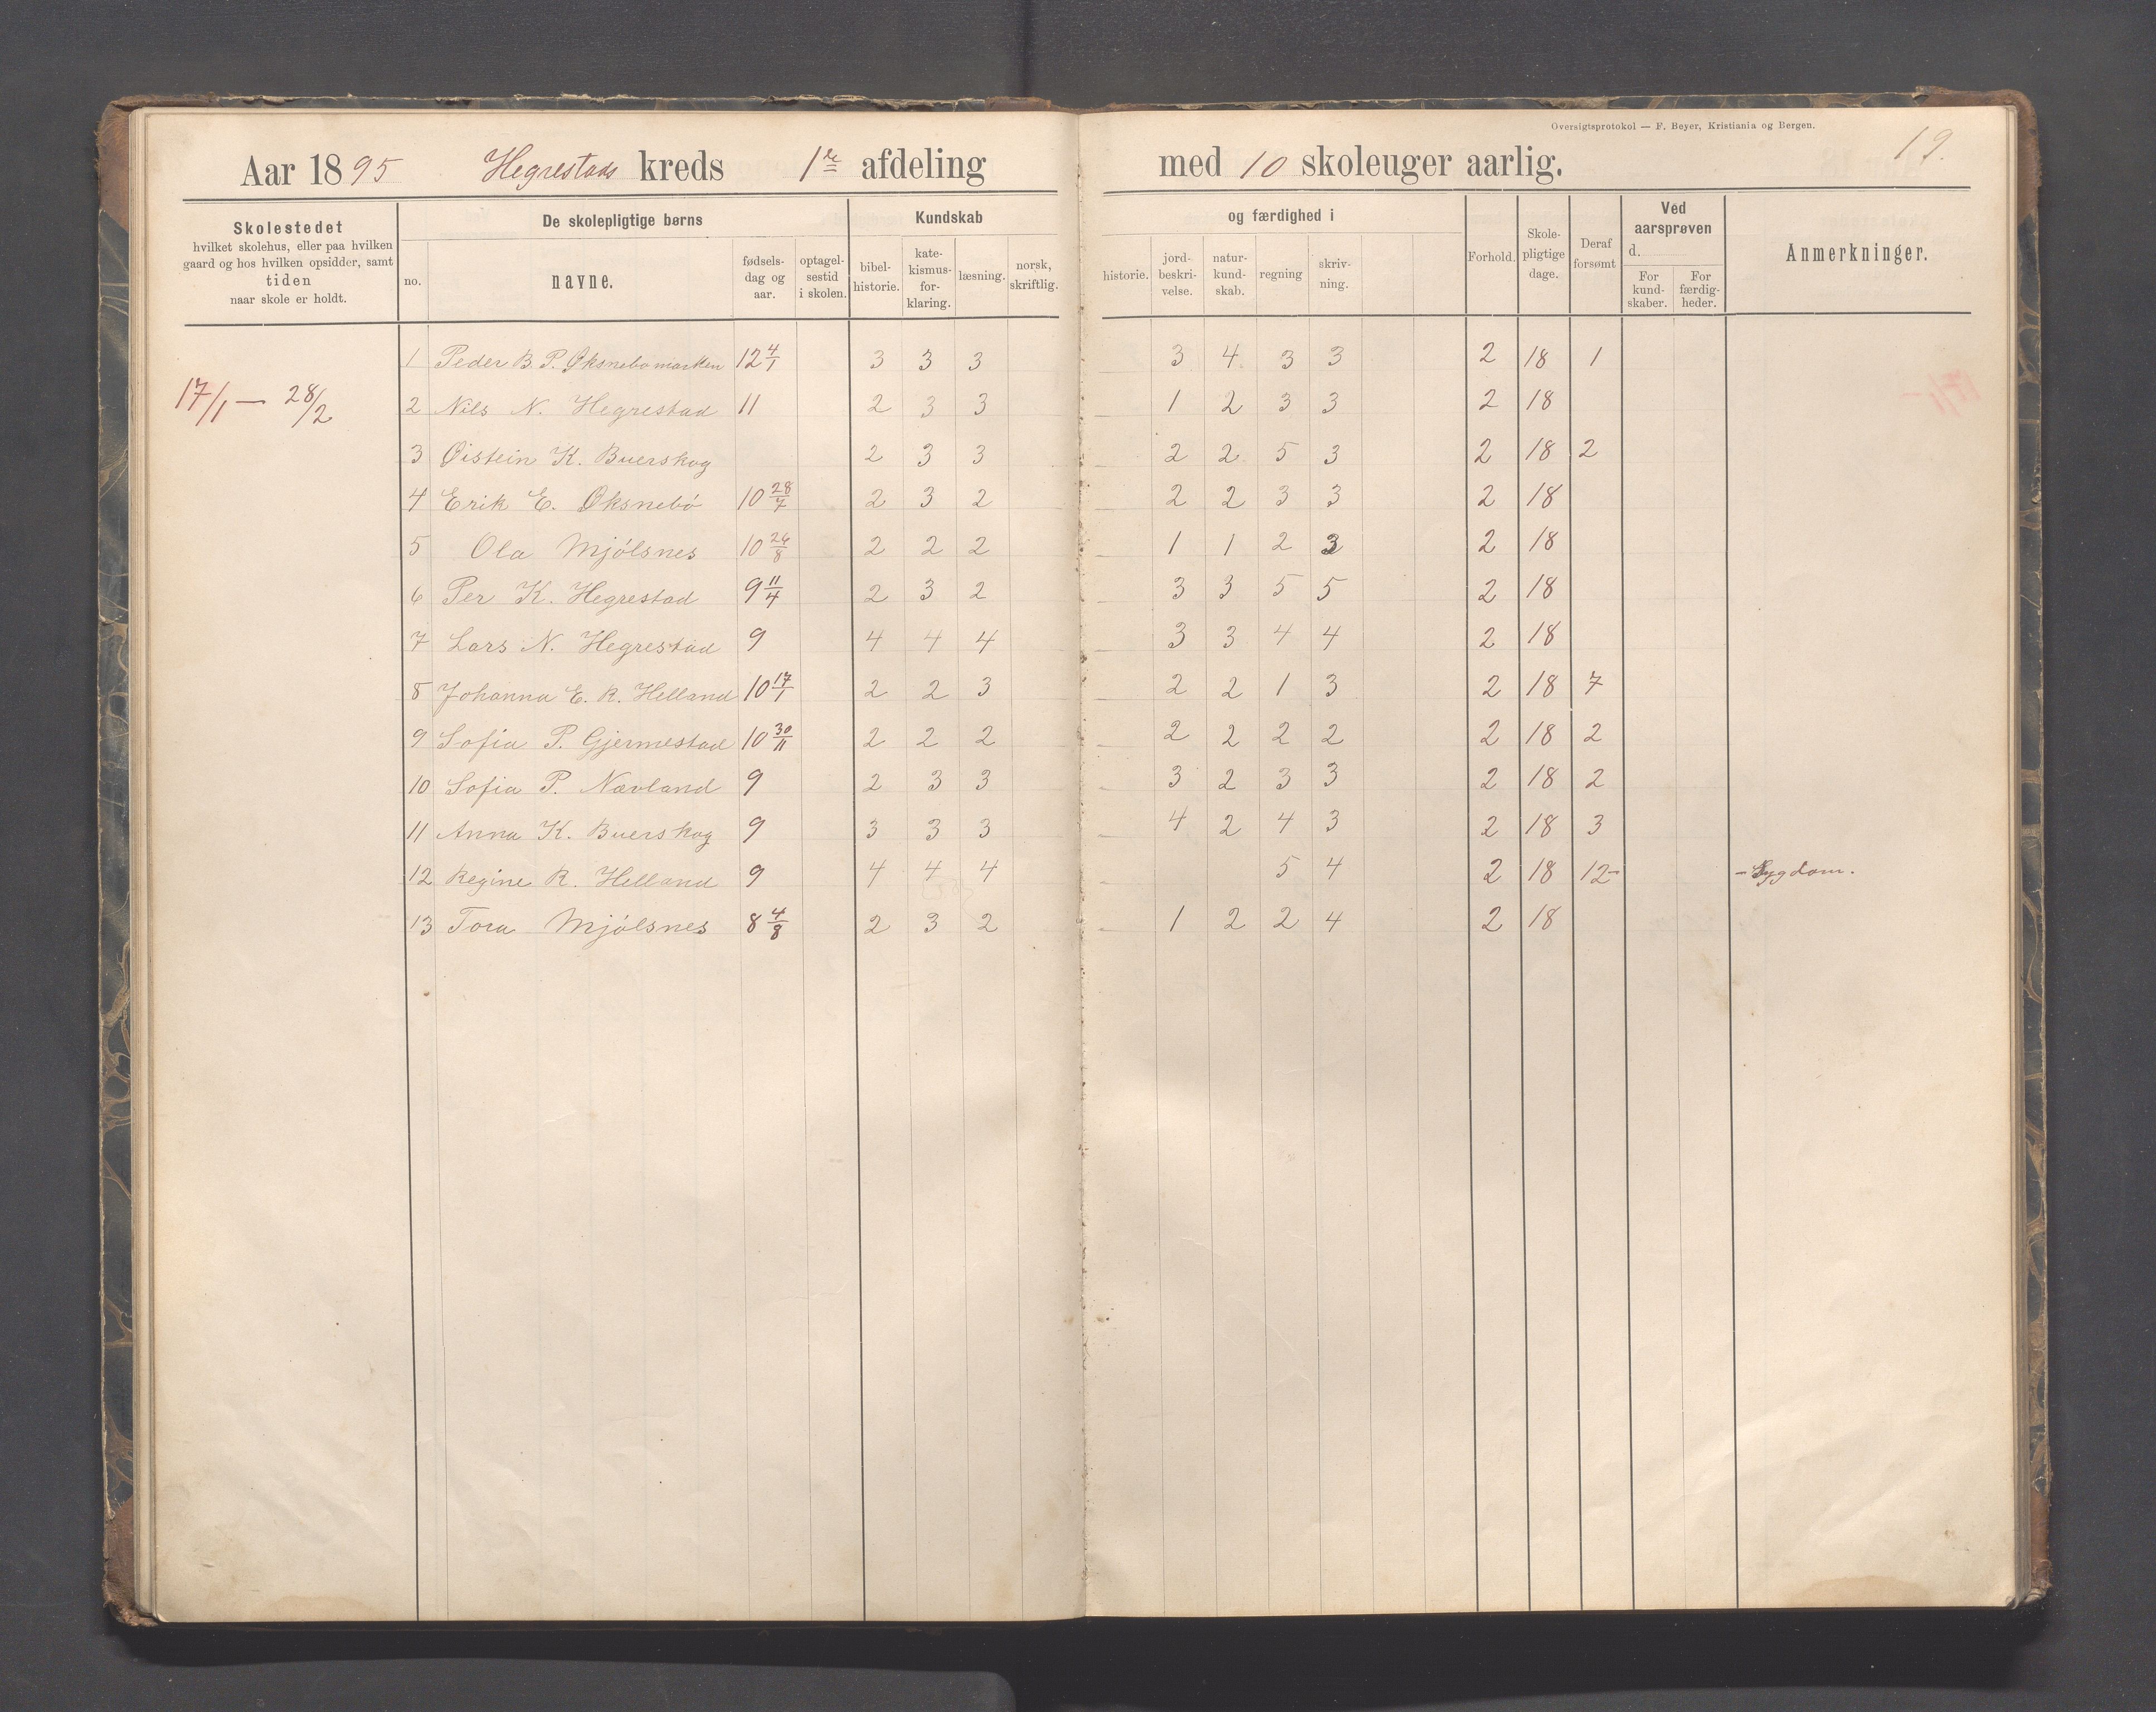 Oversigtsprotokol — F. Beyer, Kristiania og Bergen.
19.
Aar 1895 Hegrestads kreds 1re afdeling med 10 skoleuger aarlig.
Skolestedet
hvilket skolehus, eller paa hvilken
gaard og hos hvilken opsidder, samt
tiden
naar skole er holdt.
De skolepligtige børns
no. navne. fødsels-dag og aar. optagel-sestid i skolen.
Kundskab og færdighed i
bibel-historie. kate-kismus-for-klaring. læsning. norsk, skriftlig. historie. jord-beskri-velse. natur-kund-skab. regning skriv-ning.
Forhold. Skole-pligtige dage. Deraf forsømt
Ved aarsprøven
d.
For kund-skaber. For færdig-heder.
Anmerkninger.
17/1 — 28/2
1 Peder B. P. Øksnebomarken 12 4/1 3 3 3 3 4 3 3 2 18 1
2 Nils N. Hegrestad 11 2 3 3 1 2 3 3 2 18
3 Øistein K. Buerskog 2 3 3 2 2 5 3 2 18 2
4 Erik E. Øksnebö 10 28/7 2 3 2 2 2 3 3 2 18
5 Ola Mjölsnes 10 26/8 2 2 2 1 1 2 3 2 18
6 Per K. Hegrestad 9 11/4 2 3 2 3 3 5 5 2 18
7 Lars N. Hegrestad 9 4 4 4 3 3 4 4 2 18
8 Johanna E. R. Helland 10 17/1 2 2 3 2 2 1 3 2 18 7
9 Sofia P. Gjermestad 10 30/11 2 2 2 2 2 2 2 2 18 2
10 Sofia P. Nævland 9 2 3 3 3 2 3 3 2 18 2
11 Anna K. Buerskog 9 3 3 3 4 2 4 3 2 18 3
12 Regine R. Helland 9 4 4 4 5 4 2 18 12 – – Sygdom.
13 Tora Mjölsnes 8 4/8 2 3 2 1 2 2 4 2 18